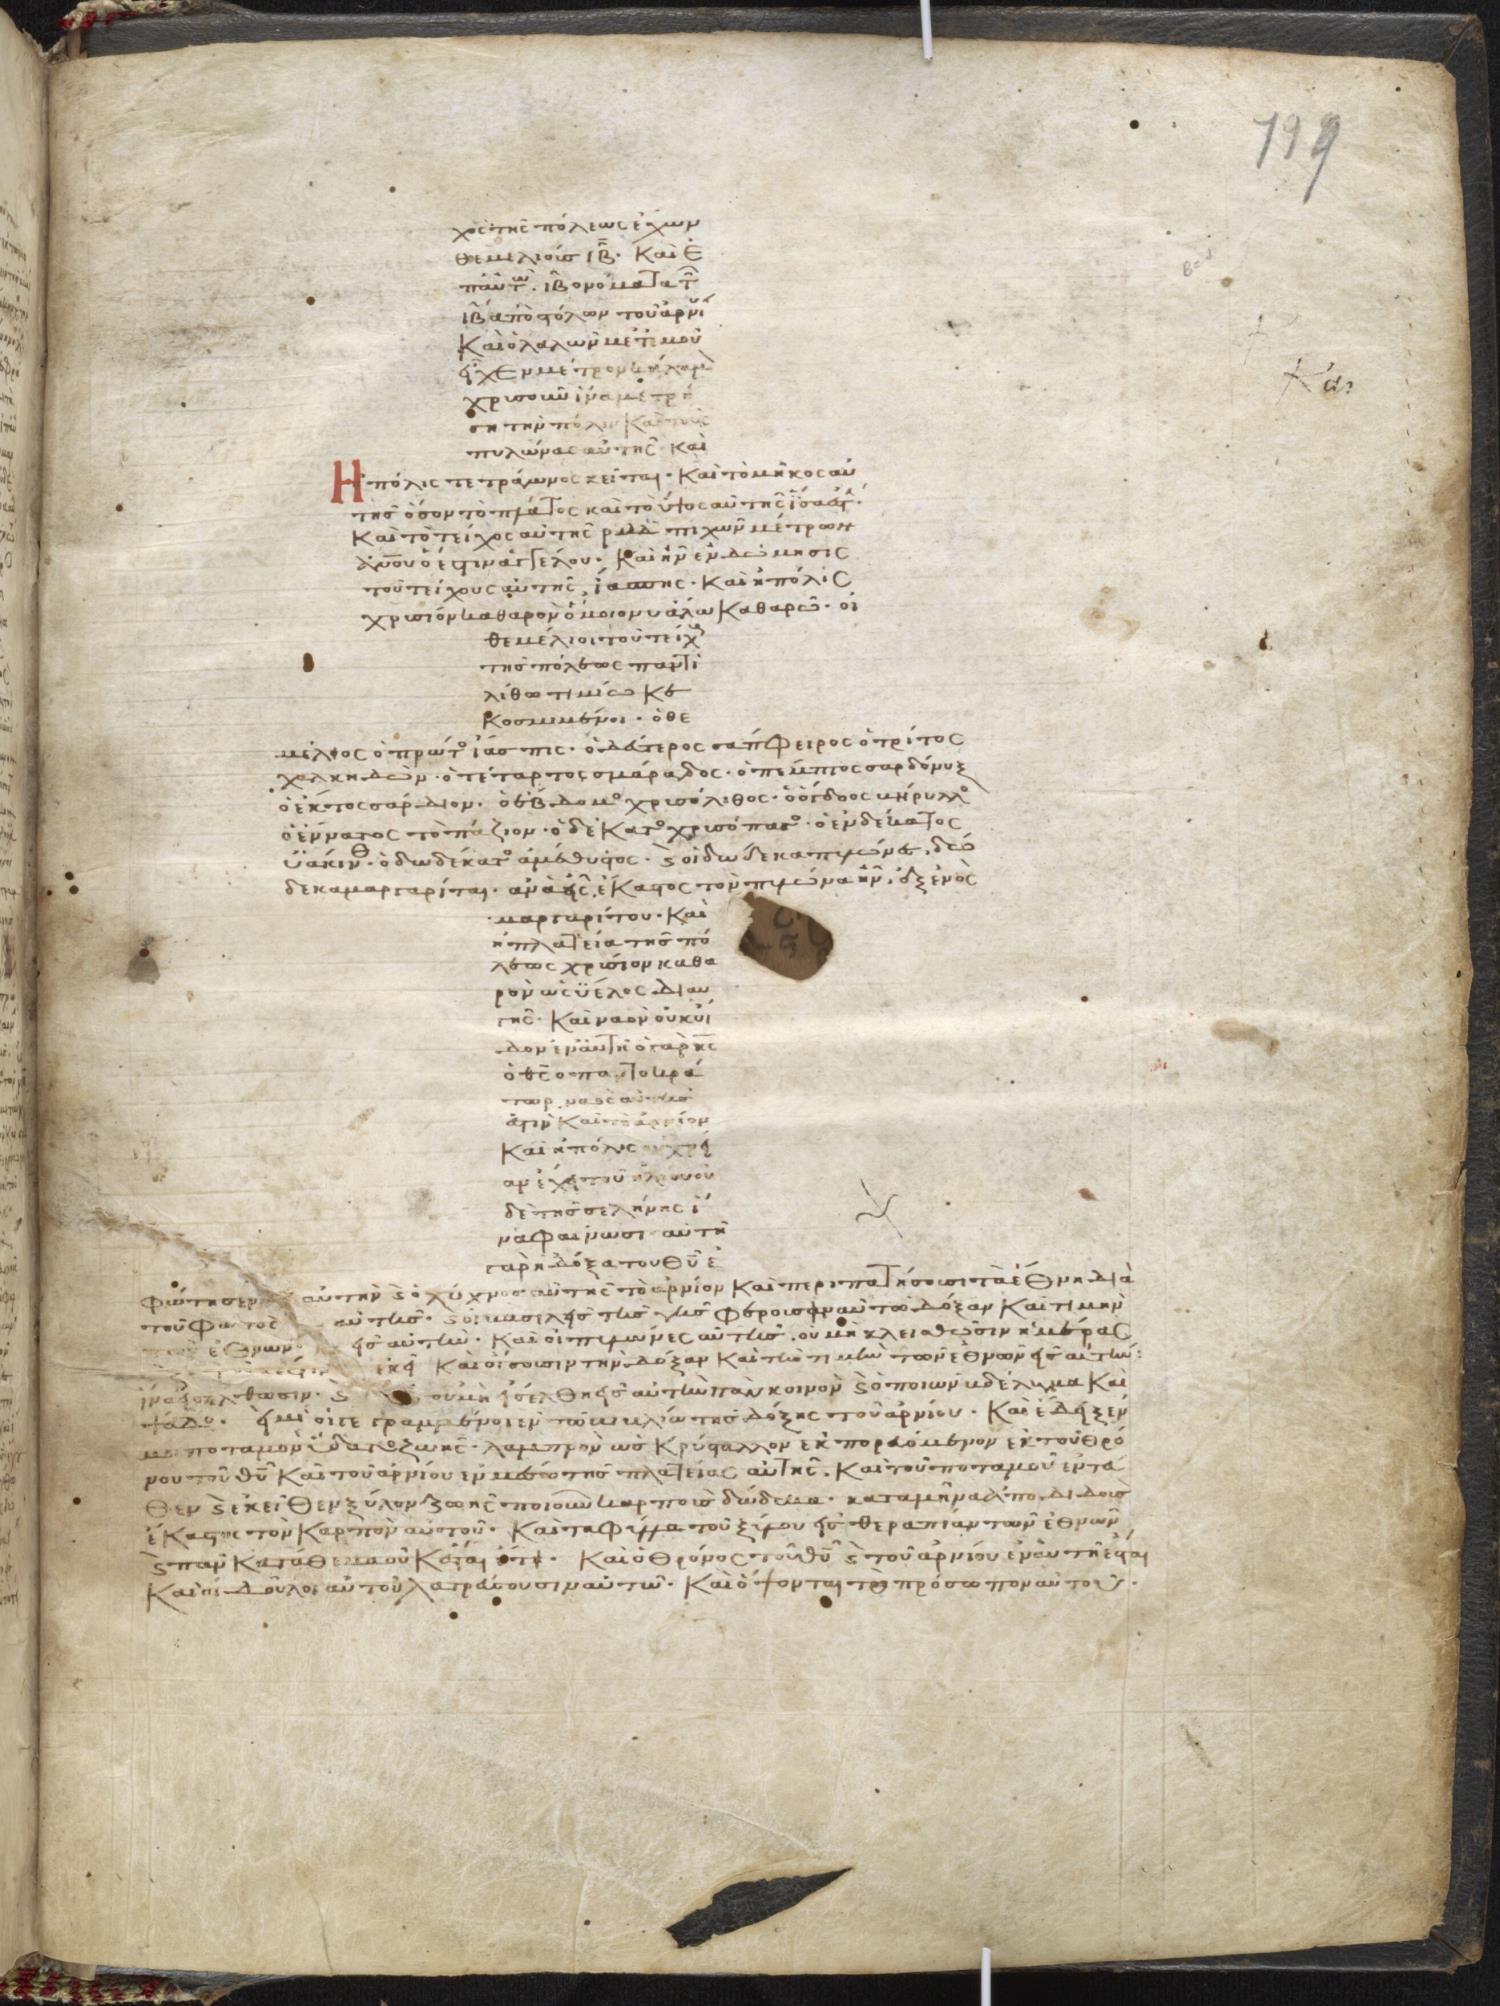 199
Και
χος της πόλεως ἔχων
θεμελίους ιβ· Και ἐ
π αὐτῶν· ιβ ονόματα τ
ιβ ἀποστόλων του ἀρνί
Και ὁ λαλῶν μετ εμοῦ
εἶχεν μέτρον κάλαμ
χρισοῦν ἵνα μετρή
ση την πόλιν και τους
πυλώνας αὐτῆς και
Η πόλις τετράγωνος κεῖται· Και το μῆκος αὐ
της ὅσον το πλάτος και το ὕψος αὐτης ἴσα ἐστ·
Και το τείχος αὐτης ρμδ πιχῶν μέτρων
ἀνου ὅ εστιν ἀγγέλου· Και ἦν ἐνδώμησις
του τείχους αὐτῆς ἴασπης· Και η πόλις
χρισίον καθαρον ὅμοιον υάλω καθαρῶ· οἱ
θεμέλιοι του τείχ
της πόλεως παντὶ
λίθω τιμίω κε
κοσμιμένοι· ὁ θε
μέλιος ὁ πρώτο ἴασπις· ὁ δεύτερος σαπφειρος ὁ τρίτος
χαλκηδών· ὁ τέταρτος σμάραγδος· ὁ πέμπτος σαρδόνυξ
ὁ ἕκτος σάρδιον· ὁ έβδομο χρισόλιθος· ὁ ὄγδοος βήρυλλο
ὁ ἔννατος τοπάζιον· ὁ δέκατο χρισόπασο· ὁ ενδέκατος
ὑάκινθ· ὁ δωδέκατο ἀμέθυστος· ϛ οἱ δώδεκα πυλώνε, δώ
δεκα μαργαρίται· ανὰ εἷς, ἕκαστος τον πυλώνα ἦν, ἐξ ἑνὸς
μαργαρίτου· Και
η πλατεία της πό
λεως χρισίον καθα
ρον ὡς ὕελος διαυ
γης· Και ναον οὐκ εἶ
δον ἐν αὐτῆ ὁ γαρ κς
ὁ θς ο παντοκρά
τωρ ναος αὐτῆς
ἐστιν Και το ἀρνίον
Και η πόλις ου χρεί
αν ἔχει του ἡλίου οὐ
δε της σελήνης ἵ
να φαίνωσι αὐτῆ
γαρ η δόξα του θυ ἐ
φώτησεν αὐτην ϛ ὁ λύχνος αὐτης το ἀρνίον Και περιπατήσουσι τα ἔθνη δια
του φωτος αὐτης· ϛ οἱ βασιλεῖς της γης φέρουσιν αὐτῶ δόξαν Και τιμην
των ἐθνων εἰς αὐτην· Και οἱ πυλωνες αὐτης, ου μη κλεισθῶσιν ημέρας
εκεῖ Και οἴσουσιν την δόξαν Και την τιμην των ἐθνων εἰς αὐτην:
ἵνα εἰσέλθωσιν· ϛ ου μη εἰσέλθη εἰς αὐτην παν κοινον ϛ ὁ ποιων βδέλιγμα Και
ψεῦδο· εἰ μι οἱ γεγραμμένοι εν τῶ βιβλίω της δόξης του ἀρνίου· Και ἔδειξεν
μοι ποταμον ὕδατο ζωης· λαμπρον ως κρύσταλλον ἐκπορευόμενον εκ του θρό
νου του θυ Και του ἀρνίου εν μέσω της πλατείας αὐτης· Και του ποταμου εντευ
θεν ϛ εκειθεν ξύλον ζωης ποιουν καρπους δώδεκα· κατα μηνα ἀποδιδους
ἕκαστος τον Καρπον αὐτου· Και τα φύλλα του ξύλου εἰς θεραπιαν των ἐθνων
ϛ παν Κατάθεμα οὐκ ἔσται ἔτι· Και ὁ θρόνος του θυ ϛ του ἀρνίου εν αὐτη ἔσται
Και οι δοῦλοι αὐτου λατρεύουσιν αὐτῶ· Και ὄψονται το πρόσωπον αὐτου·